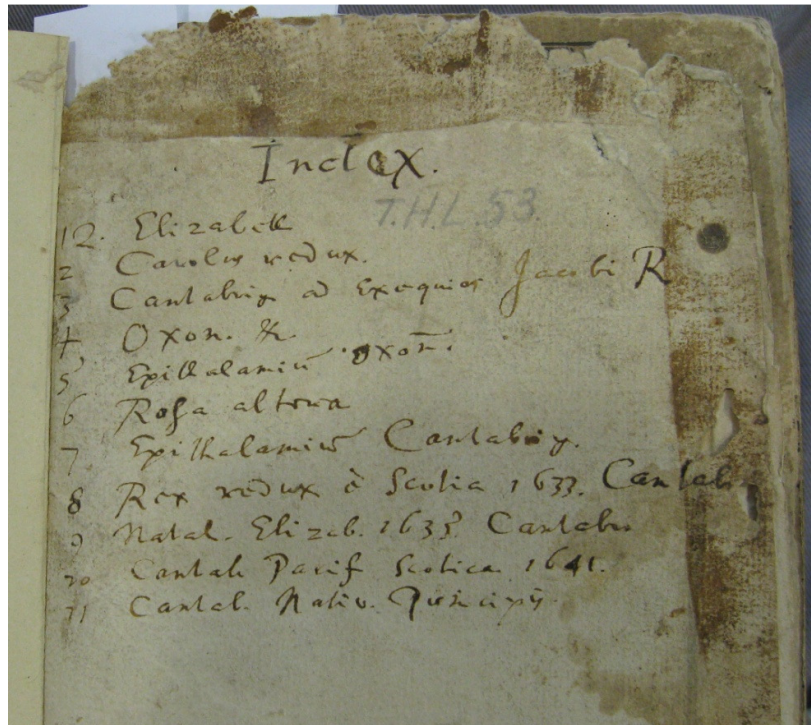 Index.
T.H.L. 53.
12. Elizabeth
2 Carolus redux.
3 Cantabrig ad Exequias Jacobi R
4 Oxon. &c.
5 Epithalamiū Oxoñ.
6 Rosa altera
7 Epithalamiū Cantabrig.
8 Rex redux è Scotia 1633. Cantabr
9 Natal. Elizab. 1635 Cantabr
10 Cantab Pacif Scotica 1641.
11 Cantab. Nativ. Principis.